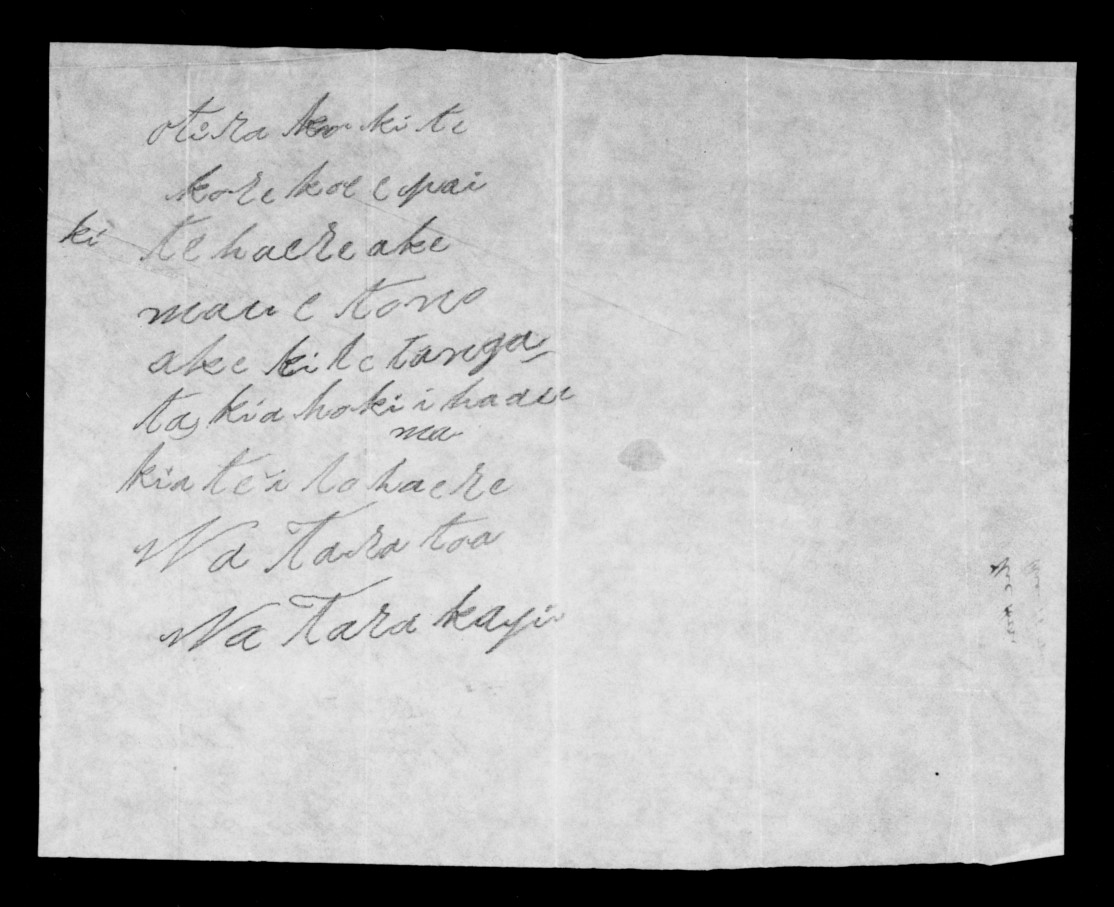 otira ko ki te
kore koe e pai
ki te haere ake
mau e tono
ake ki te tanga
ta, kia hoki i haau
ma
kia te i to haere
Na Tara toa
Na Tara